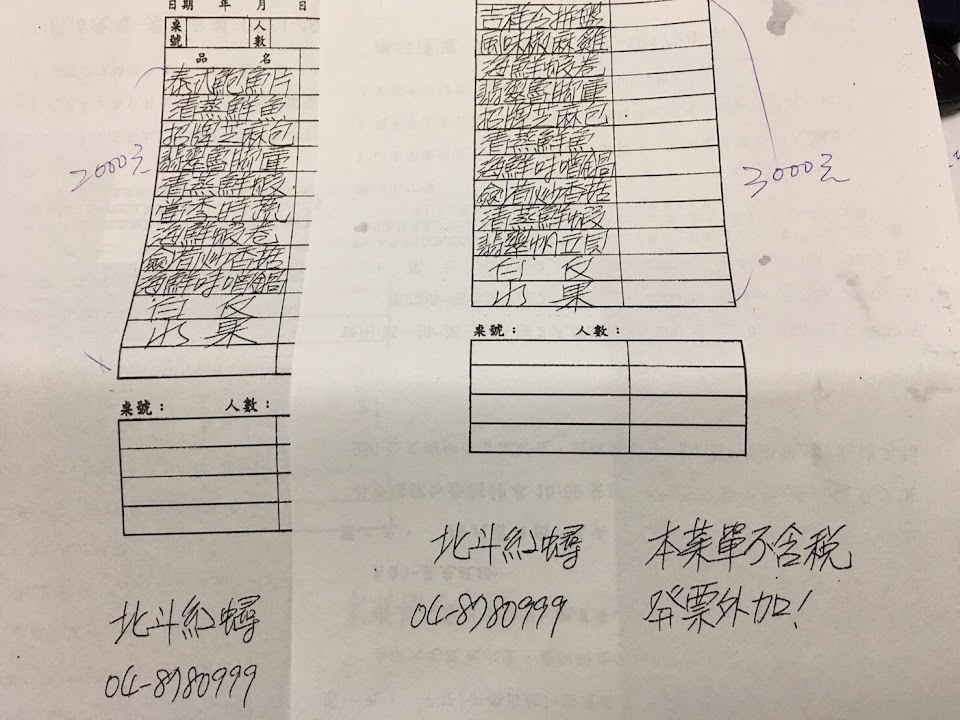 日期 年 月 日
桌號 人數
品 名
泰式鮑魚片
清蒸鮮魚
招牌芝麻包
翡翠魚脚筆
清蒸鮮蝦
當季時蔬
海鮮蝦卷
劍荀炒香菇
海鮮味噌鍋
白 飯
水 果
2000元
桌號： 人數：
北斗紅蟳
04-8780999
吉祥合拼碟
風味椒麻雞
海鮮蝦卷
招牌芝麻包
清蒸鮮魚
海鮮味噌鍋
劍荀炒香菇
清蒸鮮蝦
翡翠帆立貝
白 飯
水 果
3000元
桌號： 人數：
北斗紅蟳
04-8780999
本菜單不含稅
發票外加！